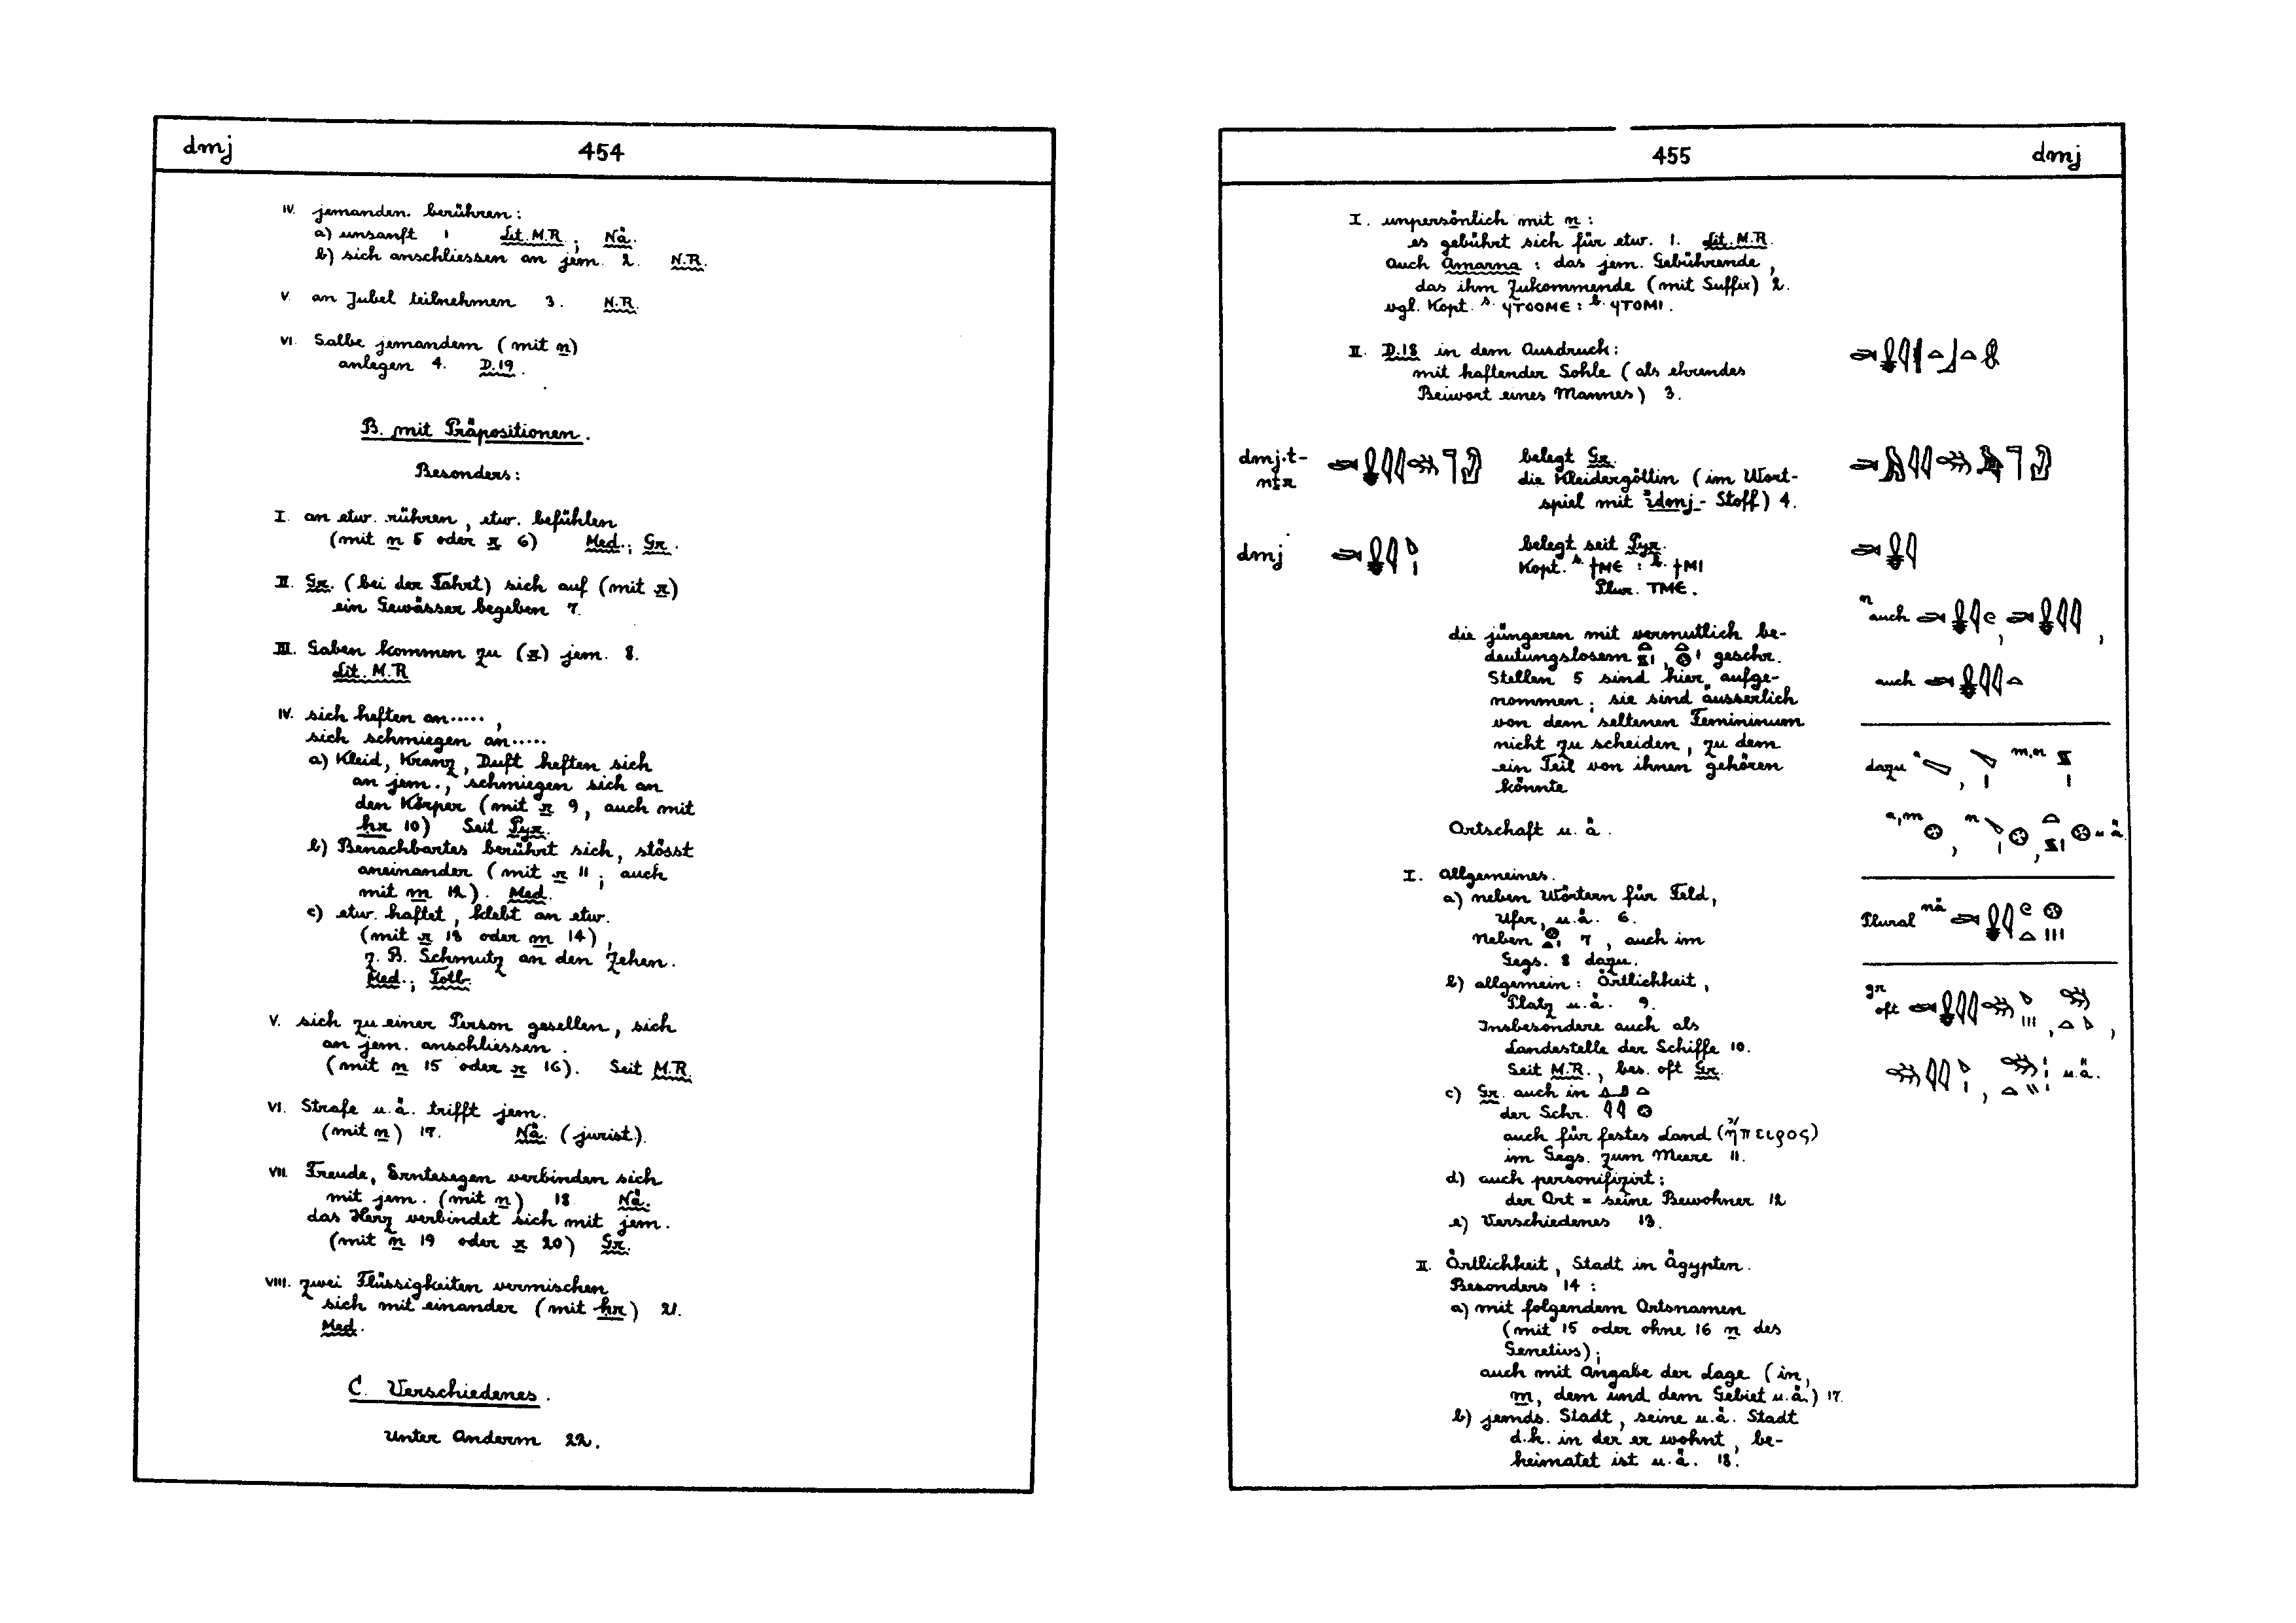 dmj 454
IV. jemanden berühren:
a) unsanft 1 Lit. M.R.; Nä.
b) sich anschliessen an jem. 2. N.R.
V. an Jubel teilnehmen 3. N.R.
VI. Salbe jemandem (mit n)
anlegen 4. D.19.
B. mit Präpositionen.
Besonders:
I. an etw. rühren, etw. befühlen
(mit n 5 oder r 6) Med.; Gr.
II. Gr. (bei der Fahrt) sich auf (mit r)
ein Gewässer begeben 7.
III. Gaben kommen zu (r) jem. 8.
Lit. M.R
IV. sich heften an.....,
sich schmiegen an.....
a) Kleid, Kranz, Duft heften sich
an jem., schmiegen sich an
den Körper (mit r 9, auch mit
ḥr 10) Seit Pyr.
b) Benachbartes berührt sich, stösst
aneinander (mit r 11; auch
mit m 12). Med.
c) etw. haftet, klebt an etw.
(mit r 13 oder m 14),
z. B. Schmutz an den Zehen.
Med.; Totb.
V. sich zu einer Person gesellen, sich
an jem. anschliessen.
(mit n 15 oder r 16). Seit M.R.
VI. Strafe u.ä. trifft jem.
(mit n) 17. Nä. (jurist.).
VII. Freude, Erntesegen verbinden sich
mit jem. (mit n) 18 Nä.
das Herz verbindet sich mit jem.
(mit n 19 oder r 20) Gr.
VIII. zwei Flüssigkeiten vermischen
sich mit einander (mit ḥr) 21.
Med.
C. Verschiedenes.
Unter Anderm 22.
455 dmj
I. unpersönlich mit n:
es gebührt sich für etw. 1. Lit. M.R.
auch Amarna: das jem. Gebührende,
das ihm Zukommende (mit Suffix) 2.
vgl. Kopt. s. ϥⲧⲟⲟⲙⲉ: b. ϥⲧⲟⲙⲓ.
II. D.18 in dem Ausdruck:
mit haftender Sohle (als ehrendes
Beiwort eines Mannes) 3.
dmj.t- belegt Gr.
nṯr die Kleidergöttin (im Wort-
spiel mit idmj-Stoff) 4.
dmj belegt seit Pyr.
Kopt. s. ϯⲙⲉ: b. ϯⲙⲓ
Plur. ⲧⲙⲉ.
n auch
die jüngeren mit vermutlich be-
deutungslosem geschr.
Stellen 5 sind hier aufge- auch
nommen; sie sind äusserlich
von dem seltenen Femininum
nicht zu scheiden, zu dem
ein Teil von ihnen gehören dazu m.n
könnte
Ortschaft u. ä. a,m n u.ä.
I. Allgemeines.
a) neben Wörtern für Feld,
Ufer, u.ä. 6. Plural nä
neben 7, auch im
Gegs. 8 dazu.
b) allgemein: Örtlichkeit,
Platz u.ä. 9. gr oft
Insbesondere auch als
Landestelle der Schiffe 10.
Seit M.R., bes. oft Gr. u.ä.
c) Gr. auch in
der Schr.
auch für festes Land (ἤπειρος)
im Gegs. zum Meere 11.
d) auch personifizirt:
der Ort = seine Bewohner 12
e) Verschiedenes 13.
II. Örtlichkeit, Stadt in Ägypten.
Besonders 14:
a) mit folgendem Ortsnamen
(mit 15 oder ohne 16 n des
Genetivs);
auch mit Angabe der Lage (in,
m, dem und dem Gebiet u.ä.) 17.
b) jemds. Stadt, seine u.ä. Stadt
d.h. in der er wohnt, be-
heimatet ist u.ä. 18.